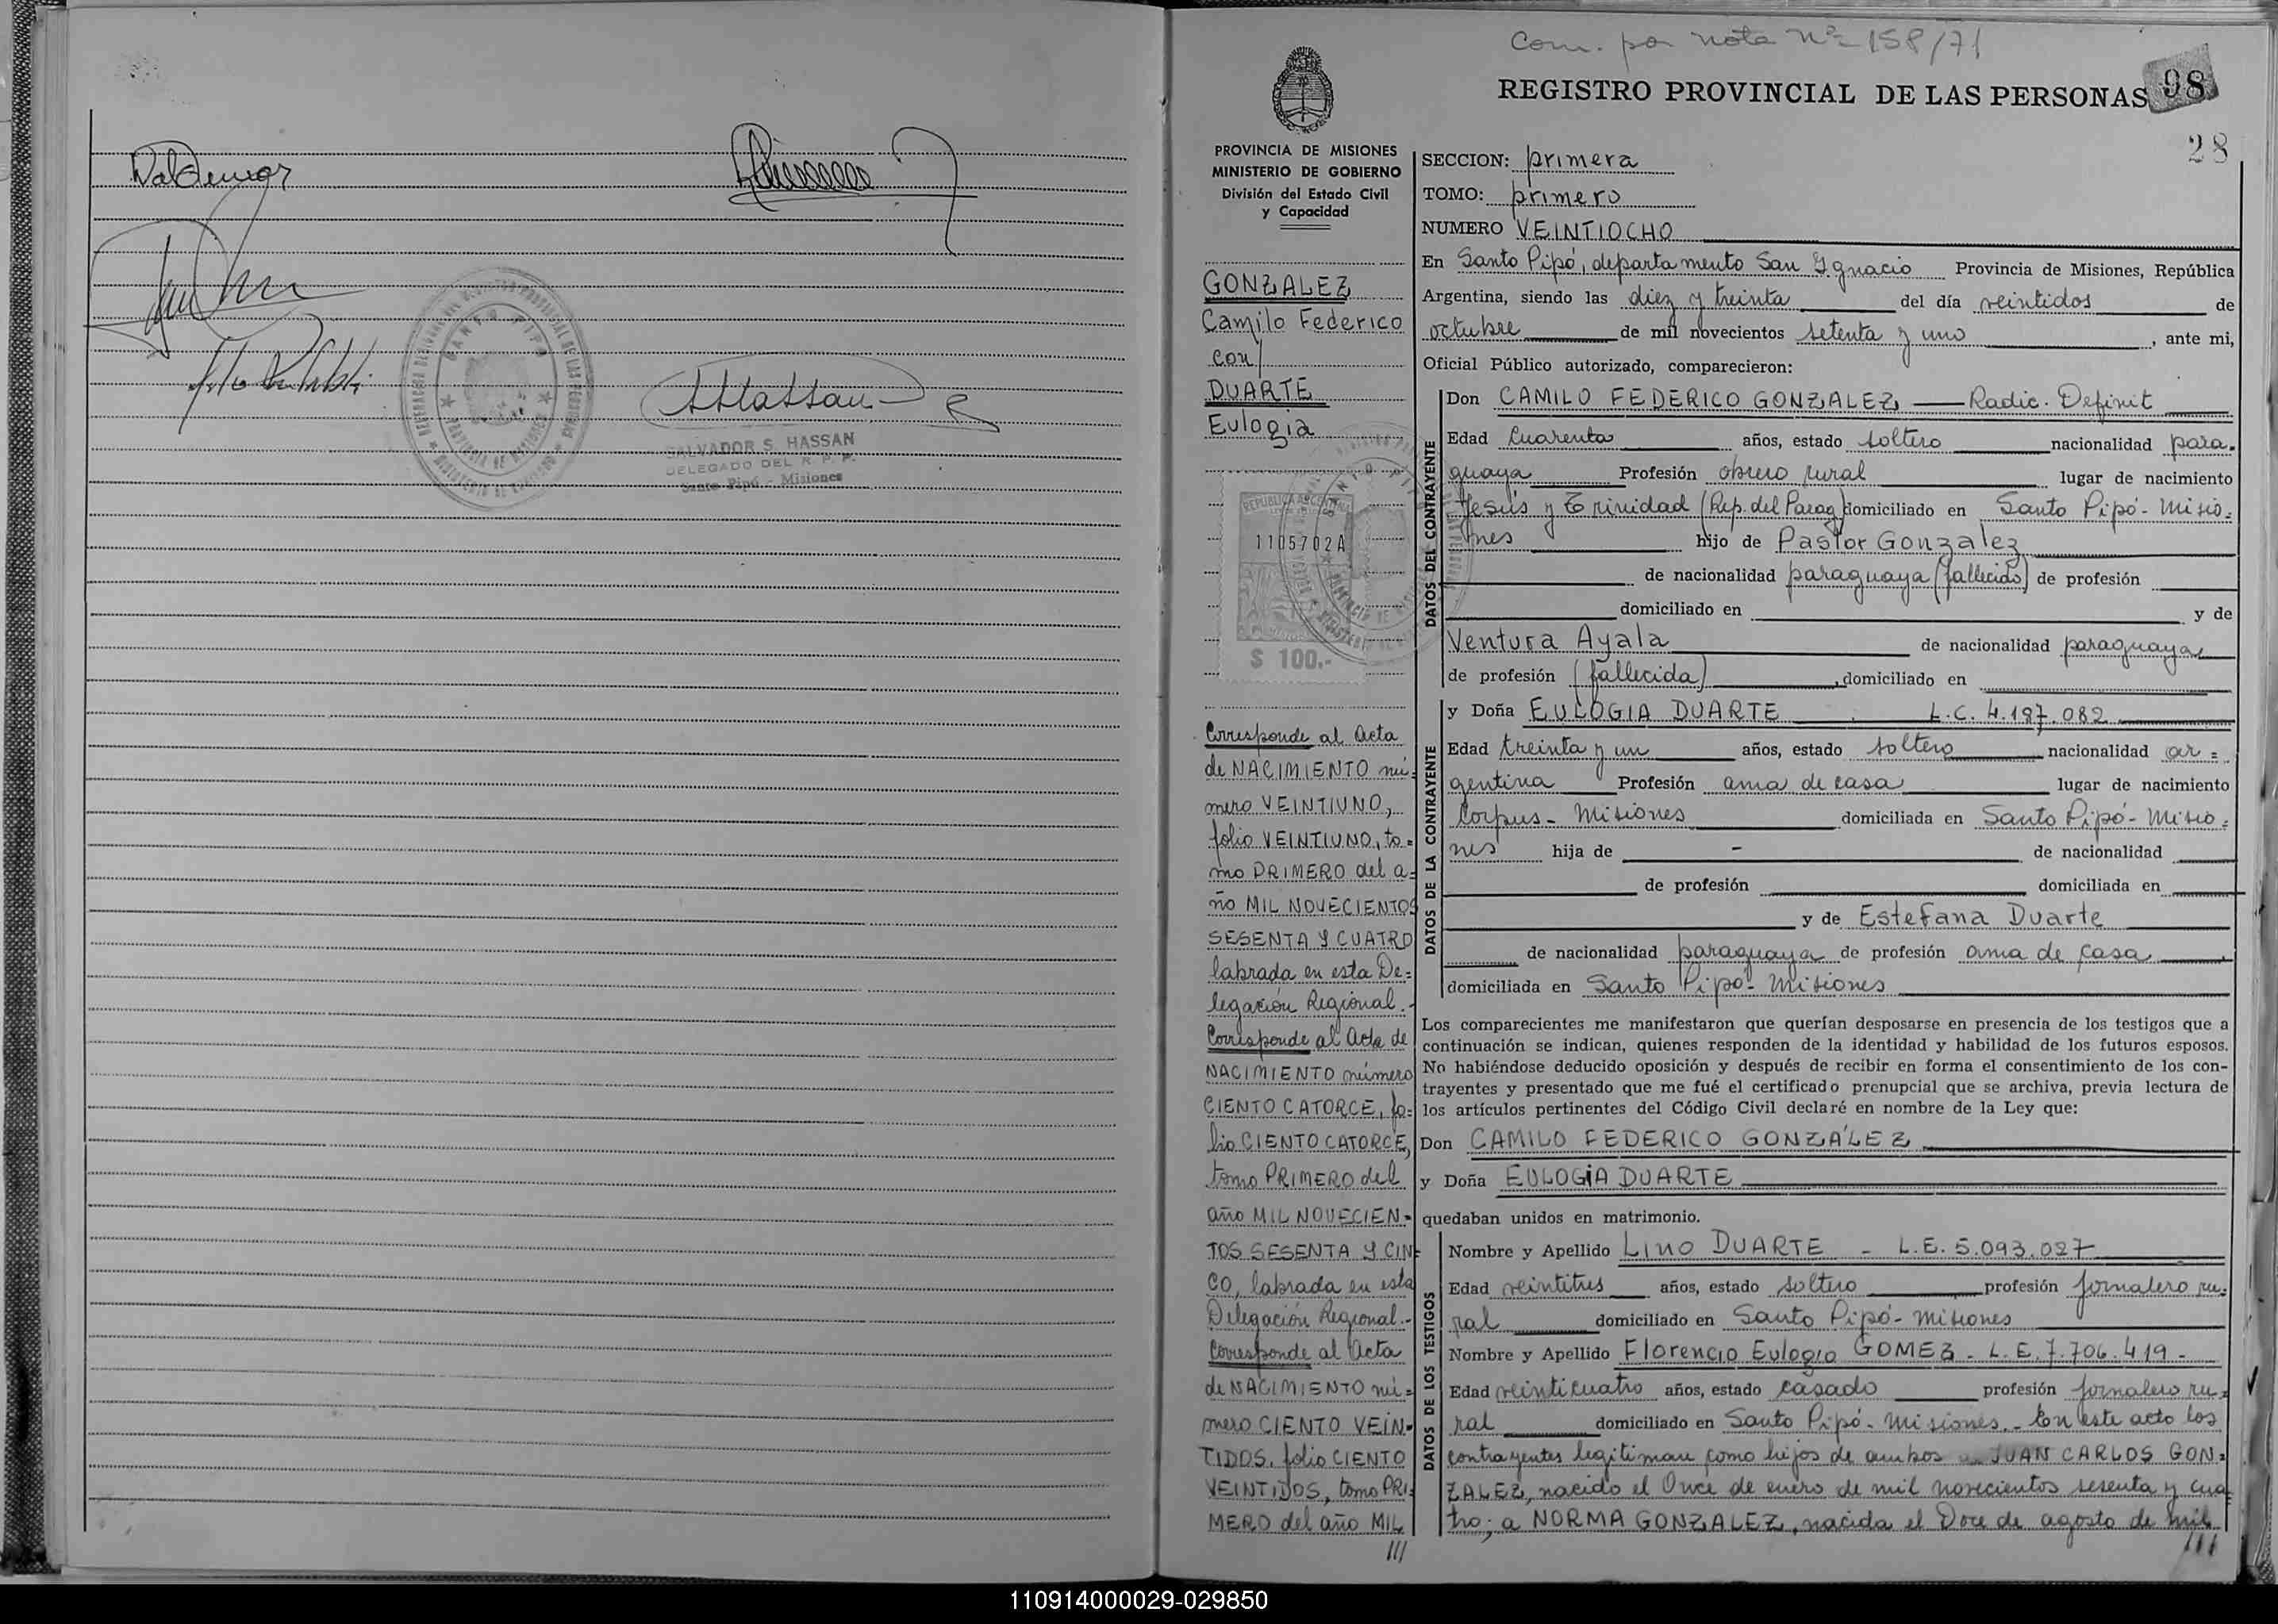 Waldemar
SANTO PIPO
SALVADOR S. HASSAN
DELEGADO DEL R. P. P.
Santo Pipó - Misiones
Com. por nota Nº 158/71
REGISTRO PROVINCIAL DE LAS PERSONAS
98
28
PROVINCIA DE MISIONES
MINISTERIO DE GOBIERNO
División del Estado Civil
y Capacidad
GONZALEZ
Camilo Federico
con/
DUARTE
Eulogia
REPUBLICA ARGENTINA
1105702A
$ 100.-
Corresponde al Acta
de NACIMIENTO nú-
mero VEINTIUNO,
folio VEINTIUNO, to=
mo PRIMERO del a-
ño MIL NOVECIENTOS
SESENTA Y CUATRO
labrada en esta De=
legación Regional.-
Corresponde al Acta de
NACIMIENTO número
CIENTO CATORCE, fo=
lio CIENTO CATORCE,
tomo PRIMERO del
año MIL NOVECIEN-
TOS SESENTA Y CIN-
CO, labrada en esta
Delegación Regional.-
Corresponde al Acta
de NACIMIENTO nú=
mero CIENTO VEIN-
TIDOS, folio CIENTO
VEINTIDOS, tomo PRI-
MERO del año MIL
///
SECCION: primera
TOMO: primero
NUMERO VEINTIOCHO
En Santo Pipó, departamento San Ignacio Provincia de Misiones, República
Argentina, siendo las diez y treinta del día veintidos de
octubre de mil novecientos setenta y uno, ante mi,
Oficial Público autorizado, comparecieron:
DATOS DEL CONTRAYENTE
Don CAMILO FEDERICO GONZALEZ — Radic. Definit
Edad Cuarenta años, estado soltero nacionalidad para-
guaya Profesión obrero rural lugar de nacimiento
Jesús y Trinidad (Rep. del Parag) domiciliado en Santo Pipó - Misio=
nes hijo de Pastor Gonzalez
de nacionalidad paraguaya (fallecido) de profesión
domiciliado en y de
Ventura Ayala de nacionalidad paraguaya
de profesión (fallecida), domiciliado en
DATOS DE LA CONTRAYENTE
y Doña EULOGIA DUARTE L.C. 4.197.082
Edad treinta y un años, estado soltera nacionalidad ar=
gentina Profesión ama de casa lugar de nacimiento
Corpus - Misiones domiciliada en Santo Pipó - Misio=
nes hija de - de nacionalidad
de profesión domiciliada en
y de Estefana Duarte
de nacionalidad paraguaya de profesión ama de casa,
domiciliada en Santo Pipó - Misiones
Los comparecientes me manifestaron que querían desposarse en presencia de los testigos que a
continuación se indican, quienes responden de la identidad y habilidad de los futuros esposos.
No habiéndose deducido oposición y después de recibir en forma el consentimiento de los con-
trayentes y presentado que me fué el certificado prenupcial que se archiva, previa lectura de
los artículos pertinentes del Código Civil declaré en nombre de la Ley que:
Don CAMILO FEDERICO GONZÁLEZ
y Doña EULOGIA DUARTE
quedaban unidos en matrimonio.
DATOS DE LOS TESTIGOS
Nombre y Apellido Lino DUARTE - L.E. 5.093.027
Edad veintitres años, estado soltero profesión jornalero ru-
ral domiciliado en Santo Pipó - Misiones
Nombre y Apellido Florencio Eulogio GOMEZ - L.E. 7.706.419 -
Edad veinticuatro años, estado casado profesión jornalero ru-
ral domiciliado en Santo Pipó - Misiones.- En este acto los
contrayentes legitiman como hijos de ambos a JUAN CARLOS GON=
ZALEZ, nacido el Once de enero de mil novecientos sesenta y cua-
tro; a NORMA GONZALEZ, nacida el Doce de agosto de mil
///
110914000029-029850